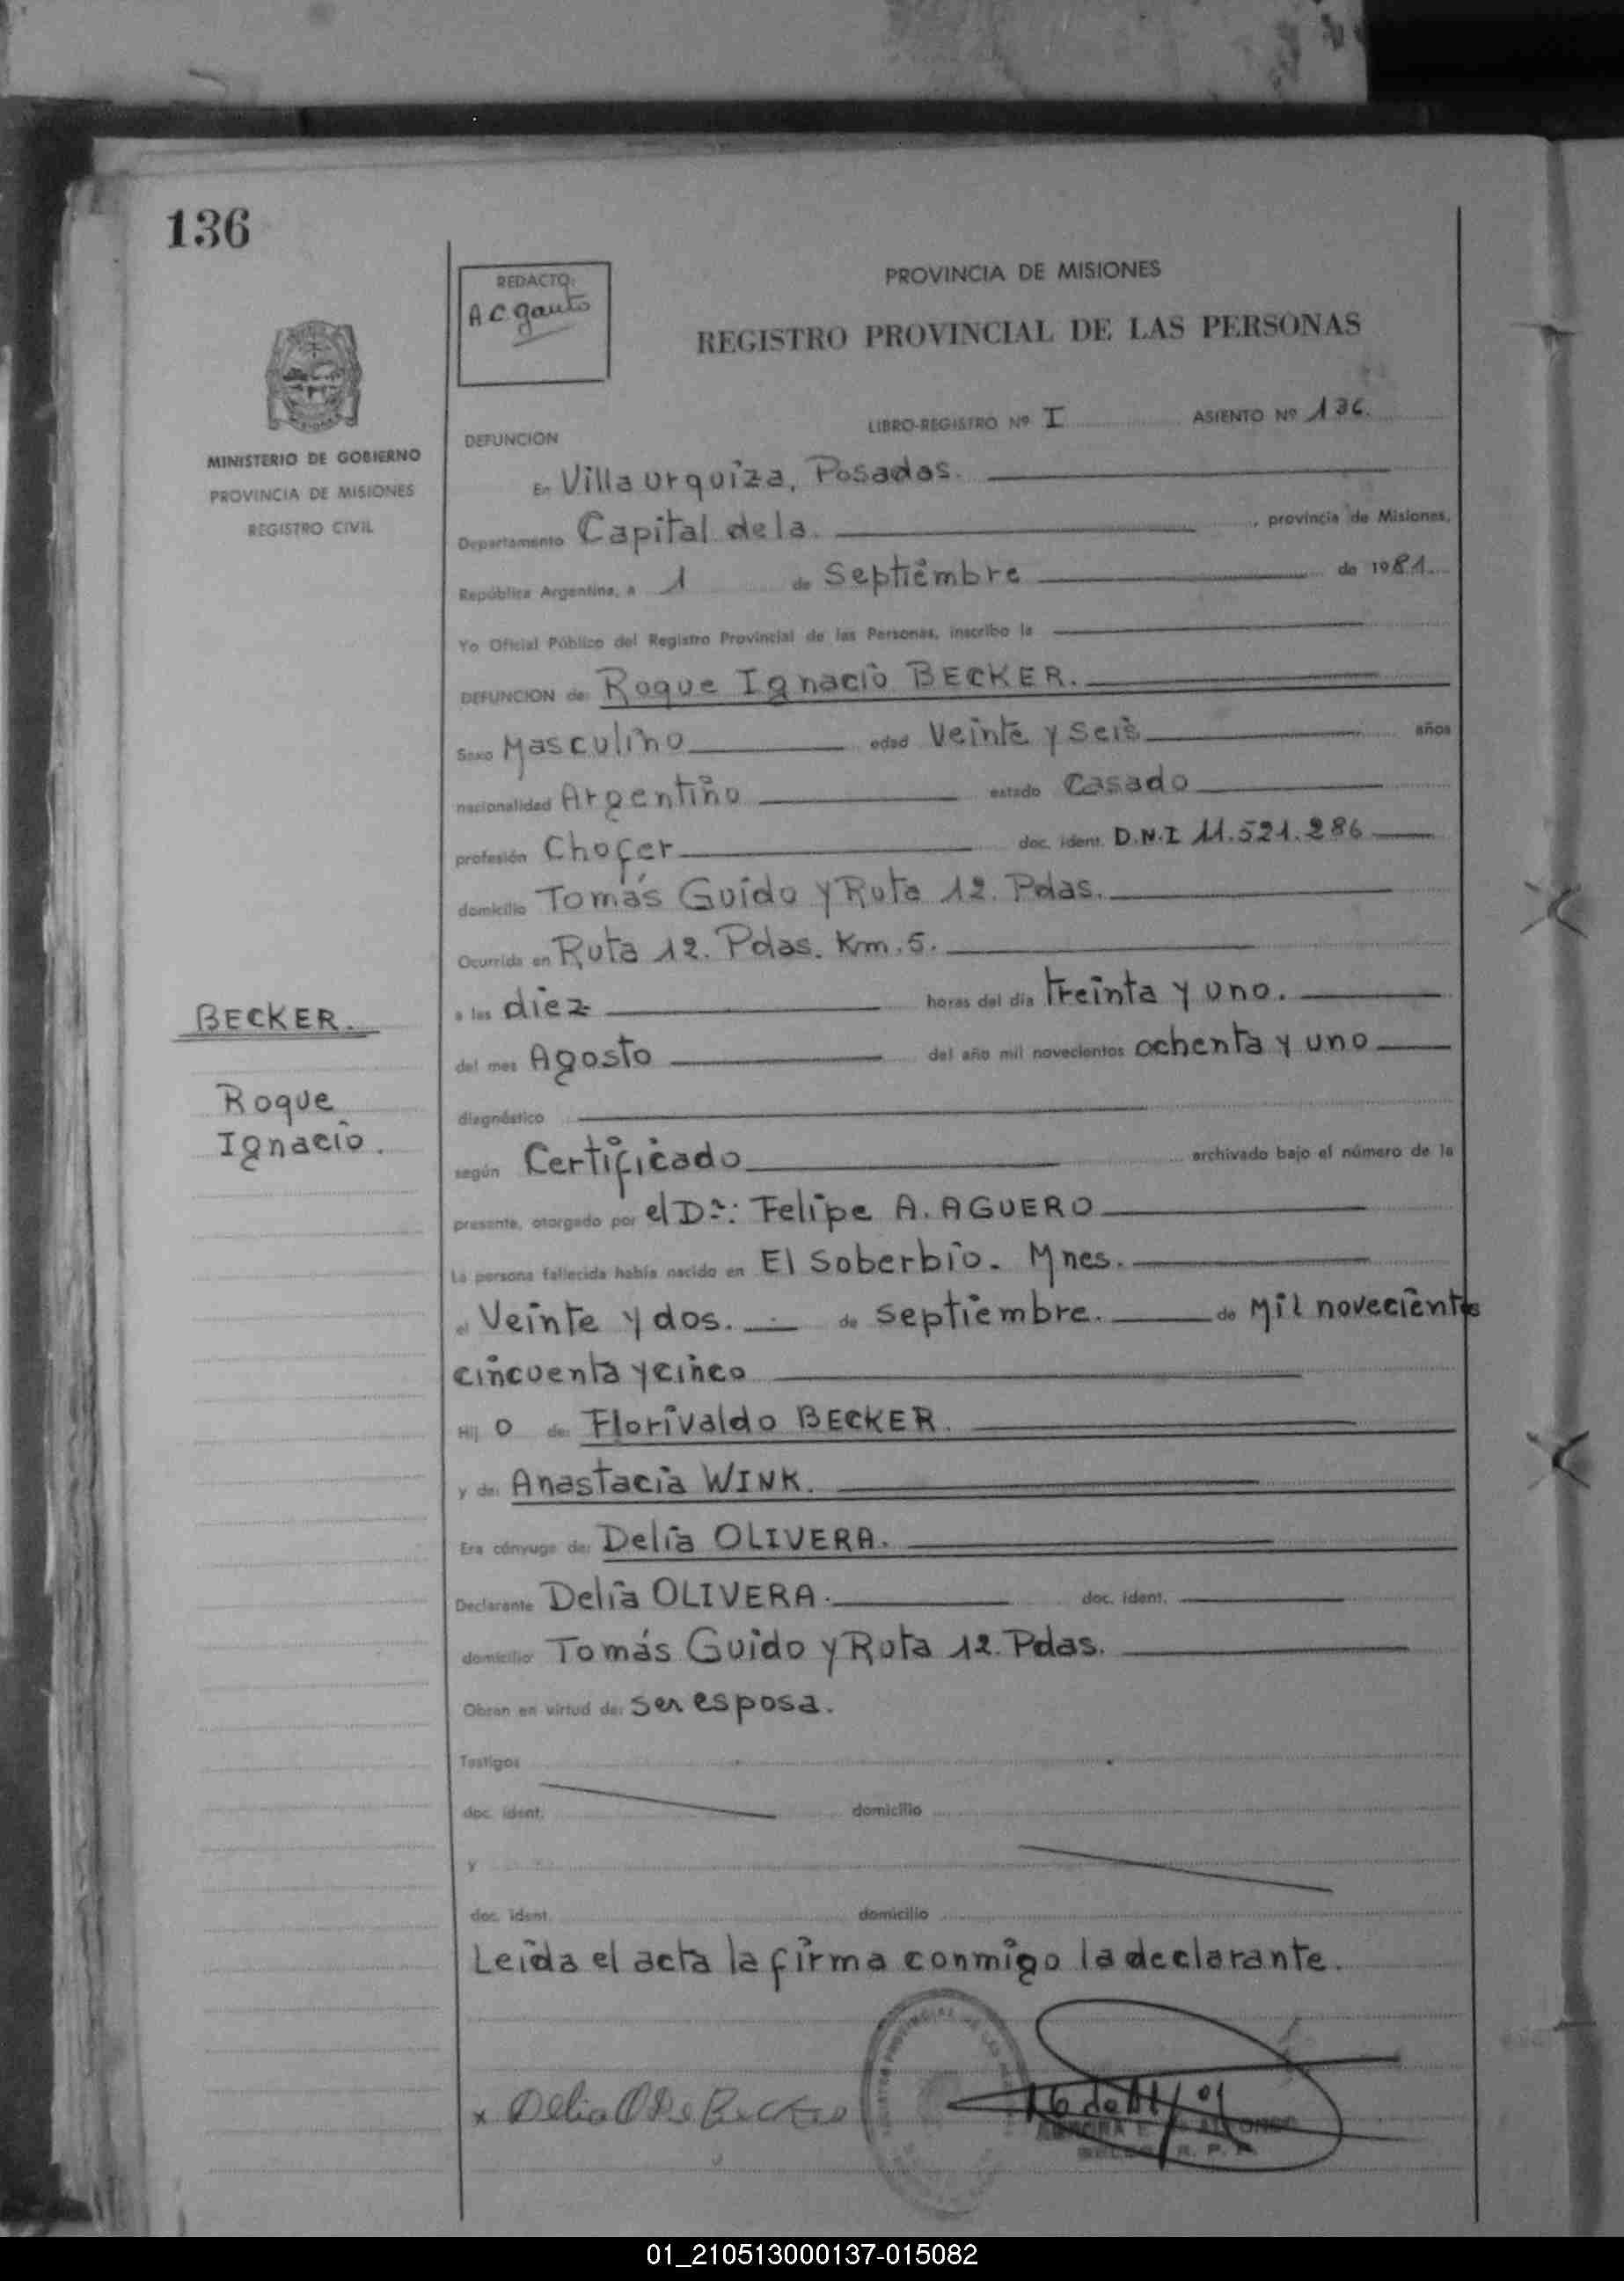 136
REDACTO:
A C. gauto
PROVINCIA DE MISIONES
REGISTRO PROVINCIAL DE LAS PERSONAS
MINISTERIO DE GOBIERNO
PROVINCIA DE MISIONES
REGISTRO CIVIL
DEFUNCION
LIBRO-REGISTRO Nº I ASIENTO Nº 136.
En Villa Urquiza, Posadas.
Departamento Capital de la , provincia de Misiones,
República Argentina, a 1 de Septiembre de 1981
Yo Oficial Público del Registro Provincial de las Personas, inscribo la
DEFUNCION de: Roque Ignacio BECKER.
Sexo Masculino edad Veinte y seis años
nacionalidad Argentino estado Casado
profesión Chofer doc. ident. D.N.I 11.521.286
domicilio Tomás Guido y Ruta 12. Pdas.
Ocurrida en Ruta 12. Pdas. Km. 5.
a las diez horas del día treinta y uno.
del mes Agosto del año mil novecientos ochenta y uno
BECKER.
Roque
Ignacio.
diagnóstico
según Certificado archivado bajo el número de la
presente, otorgado por el Dr: Felipe A. AGUERO
La persona fallecida había nacido en El Soberbio. Mnes.
el Veinte y dos. de septiembre. de Mil novecientos
cincuenta y cinco
Hij o de: Florivaldo BECKER.
y de: Anastacia WINK.
Era cónyuge de: Delia OLIVERA.
Declarante Delia OLIVERA. doc. ident.
domicilio Tomás Guido y Ruta 12. Pdas.
Obran en virtud de: ser esposa.
Testigos
doc. ident. domicilio
y
doc. ident. domicilio
Leida el acta la firma conmigo la declarante.
x Delia O De Becker
R. P. P.
01_210513000137-015082